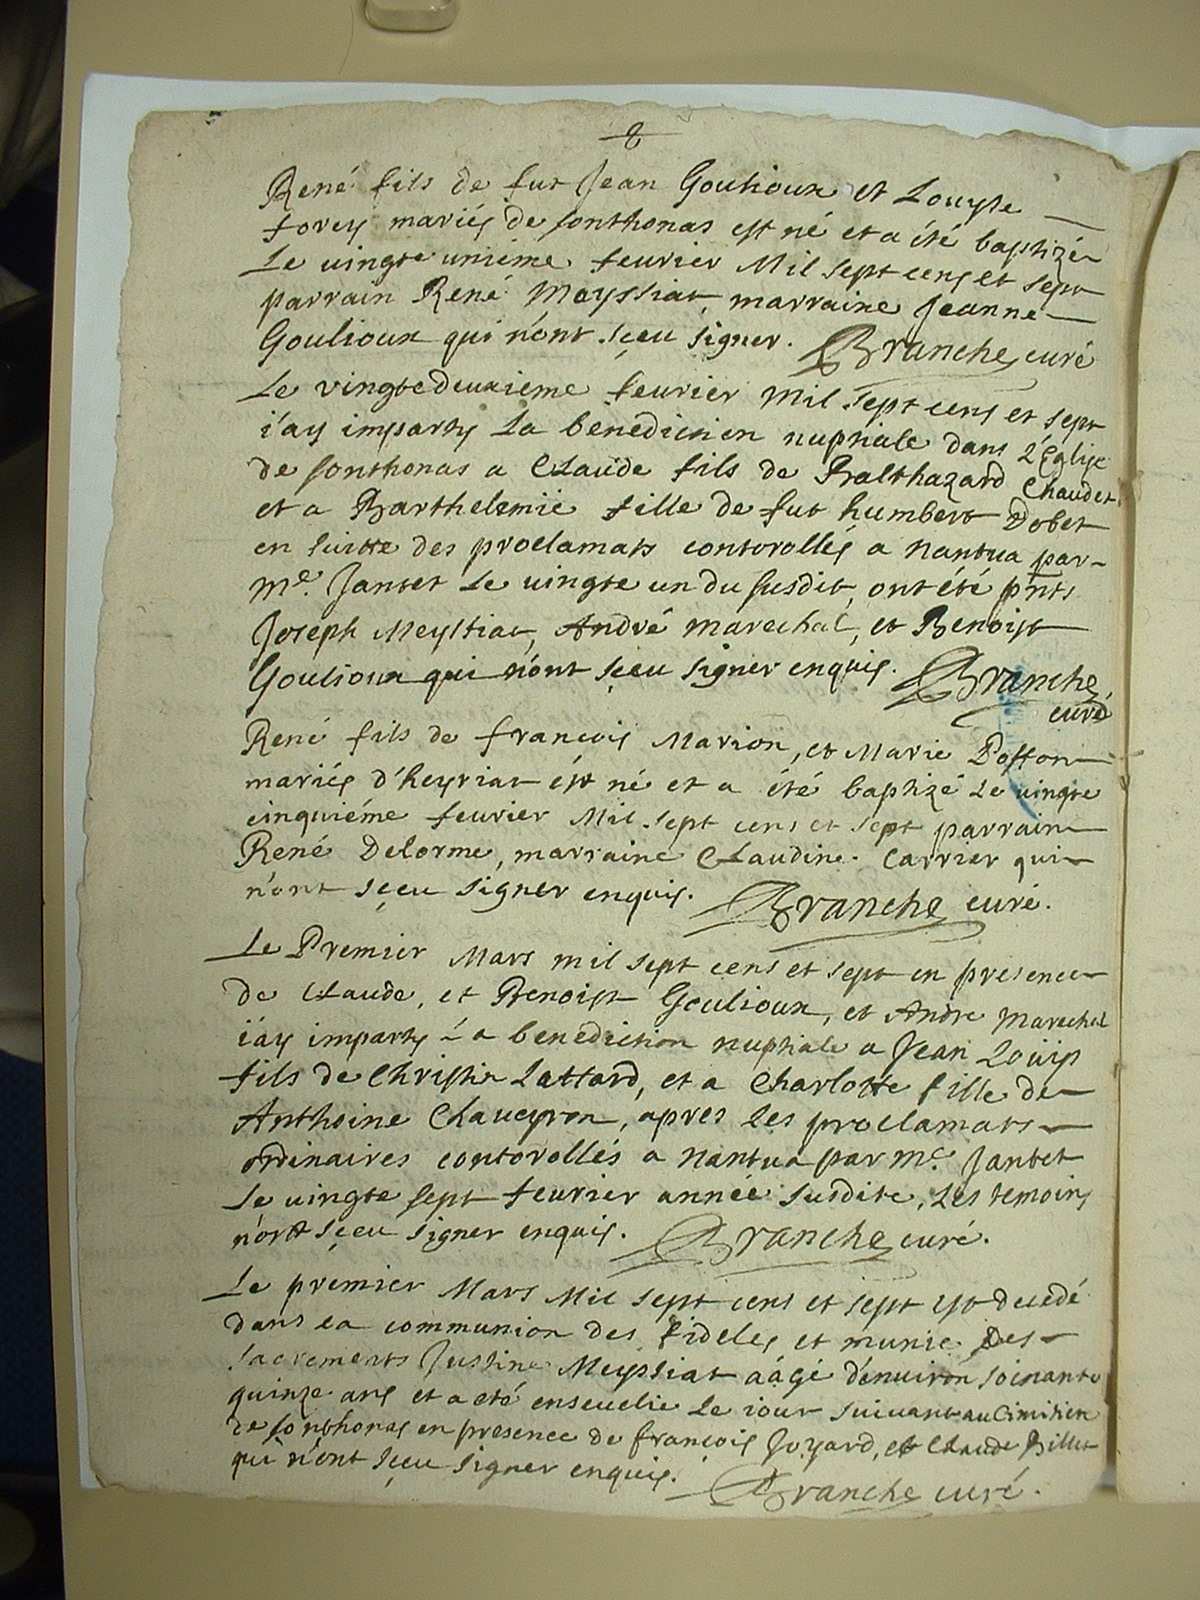 8
René fils de fut Jean Goulioux et Louyse
forey mariés de sonthonas est né et a été baptizé
Le vingte uniéme feurier Mil sept cens et sept
parrain René Meyssiat, marraine Jeanne
Goulioux qui n'ont sçeu signer. Branche curé
Le vingtedeuxieme feurier Mil sept cens et sept
i'ay imparty La benediction nuptiale dans L'Eglise
de sonthonas a Claude fils de Balthazard Chaudet
et a Barthelemie fille de fut humbert Dobet
en suitte des proclamats contorollés a Nantua par
Me. Jantet Le uingte un du susdit, ont été pnts
Joseph Meyssiat, André marechal, et Benoist
Goulioux qui n'ont sçeu signer enquis. Branche
curé
René fils de francois Marion, et Marie Posson
mariés d'heyriat ést né et a été baptizé Le uingte
cinquiéme feurier Mil sept cens et sept parrain
René Delorme, marraine Claudine Carrier qui
n'ont sçeu signer enquis. Branche curé.
Le Premier Mars mil sept cens et sept en presence
de Claude, et Benoist Goulioux, et Andre Marechal
i'ay imparty La benediction nuptiale a Jean Loüis
fils de Christin Lattard, et a Charlotte fille de
Anthoine Chaueyron, apres Les proclamats
ordinaires contorollés a Nantua par Me. Jantet
Le uingte sept feurier année susdite, Les temoins
n'ont sçeu signer enquis. Branche curé.
Le premier Mars Mil sept cens et sept est decedé
dans La communion des fideles, et munie Des
sacrements Justine Meyssiat aâgé d'enuiron soixante
quinze ans et a été enseuelie Le iour suiuant au Cimitiere
de sonthonas en presence de francois Joyard, et Claude Billet
qui n'ont sçeu signer enquis. Branche curé.